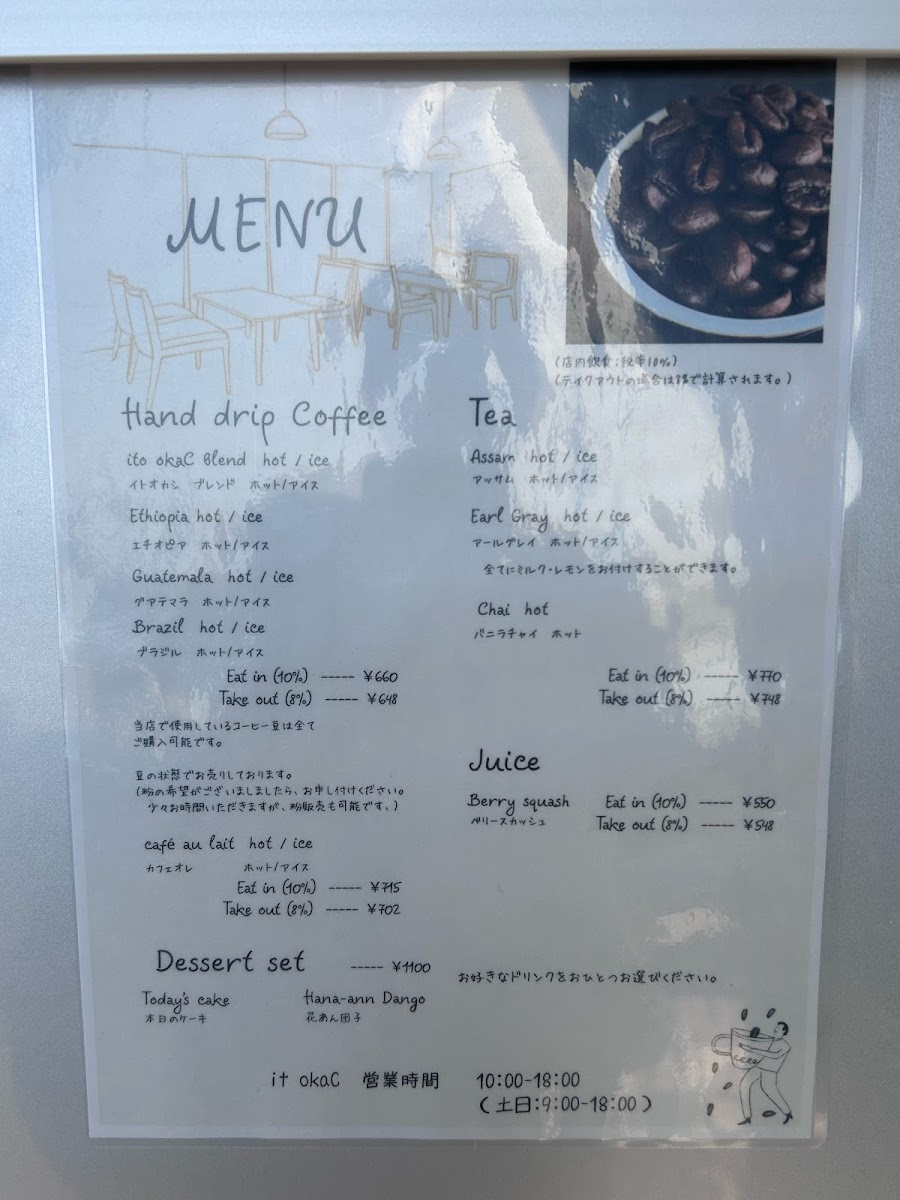 MENU
(店内飲食:税率10%)
(テイクアウトの場合は8%で計算されます。)
Hand drip Coffee
ito okaC Blend hot / ice
イトオカシ ブレンド ホット/アイス
Ethiopia hot / ice
エチオピア ホット/アイス
Guatemala hot / ice
グアテマラ ホット/アイス
Brazil hot / ice
ブラジル ホット/アイス
Eat in (10%) ----- ¥660
Take out (8%) ----- ¥648
当店で使用しているコーヒー豆は全て
ご購入可能です。
豆の状態でお売りしております。
(粉の希望がございましましたら、お申し付けください。
少々お時間いただきますが、粉販売も可能です、)
café au lait hot / ice
カフェオレ ホット/アイス
Eat in (10%) ----- ¥715
Take out (8%) ----- ¥702
Tea
Assam hot / ice
アッサム ホット/アイス
Earl Gray hot / ice
アールグレイ ホット/アイス
全てにミルク・レモンをお付けすることができます。
Chai hot
バニラチャイ ホット
Eat in (10%) ----- ¥770
Take out (8%) ----- ¥748
Juice
Berry squash Eat in (10%) ----- ¥550
ベリースカッシュ Take out (8%) ----- ¥548
Dessert set ----- ¥1100 お好きなドリンクをおひとつお選びください。
Today's cake Hana-ann Dango
本日のケーキ 花あん団子
it okaC 営業時間 10:00-18:00
(土日:9:00-18:00)